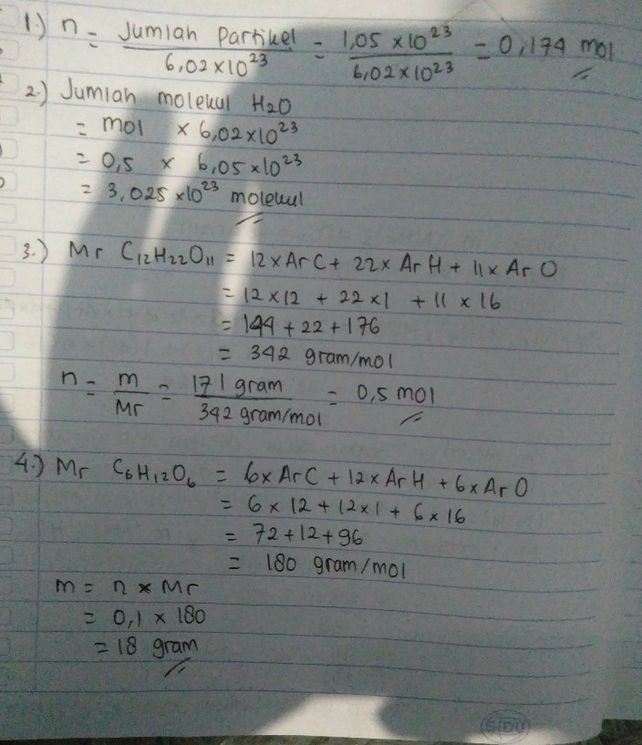 1.) n = Jumlah Partikel / 6,02 × 10²³ = 1,05 × 10²³ / 6,02 × 10²³ = 0,174 mol
2.) Jumlah molekul H₂O
= mol × 6,02 × 10²³
= 0,5 × 6,05 × 10²³
= 3,025 × 10²³ molekul
3.) Mr C₁₂H₂₂O₁₁ = 12 × Ar C + 22 × Ar H + 11 × Ar O
= 12 × 12 + 22 × 1 + 11 × 16
= 144 + 22 + 176
= 342 gram/mol
n = m / Mr = 171 gram / 342 gram/mol = 0,5 mol
4.) Mr C₆H₁₂O₆ = 6 × Ar C + 12 × Ar H + 6 × Ar O
= 6 × 12 + 12 × 1 + 6 × 16
= 72 + 12 + 96
= 180 gram/mol
m = n × Mr
= 0,1 × 180
= 18 gram
SIDU